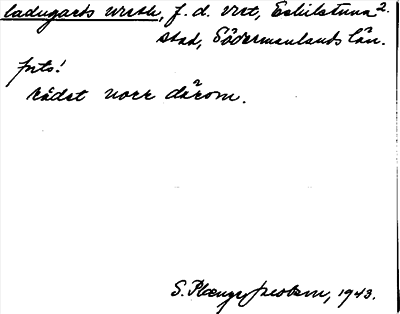 ladugards wreth, f. d. vret, Eskilstuna 2.
stad, Södermanlands län.
fnts!
rådet norr därom.
S. Plænge Jacobson, 1943.